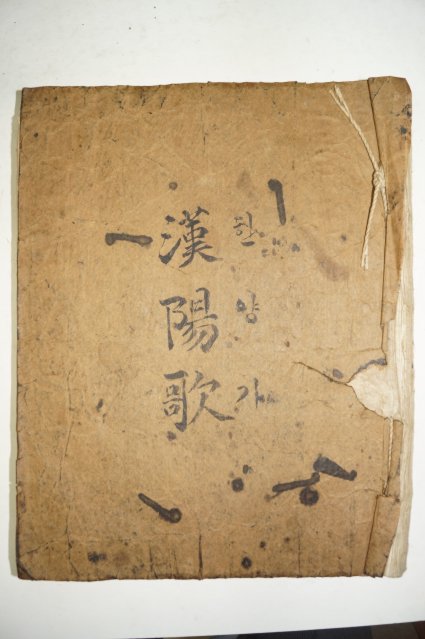 漢陽歌
한양가